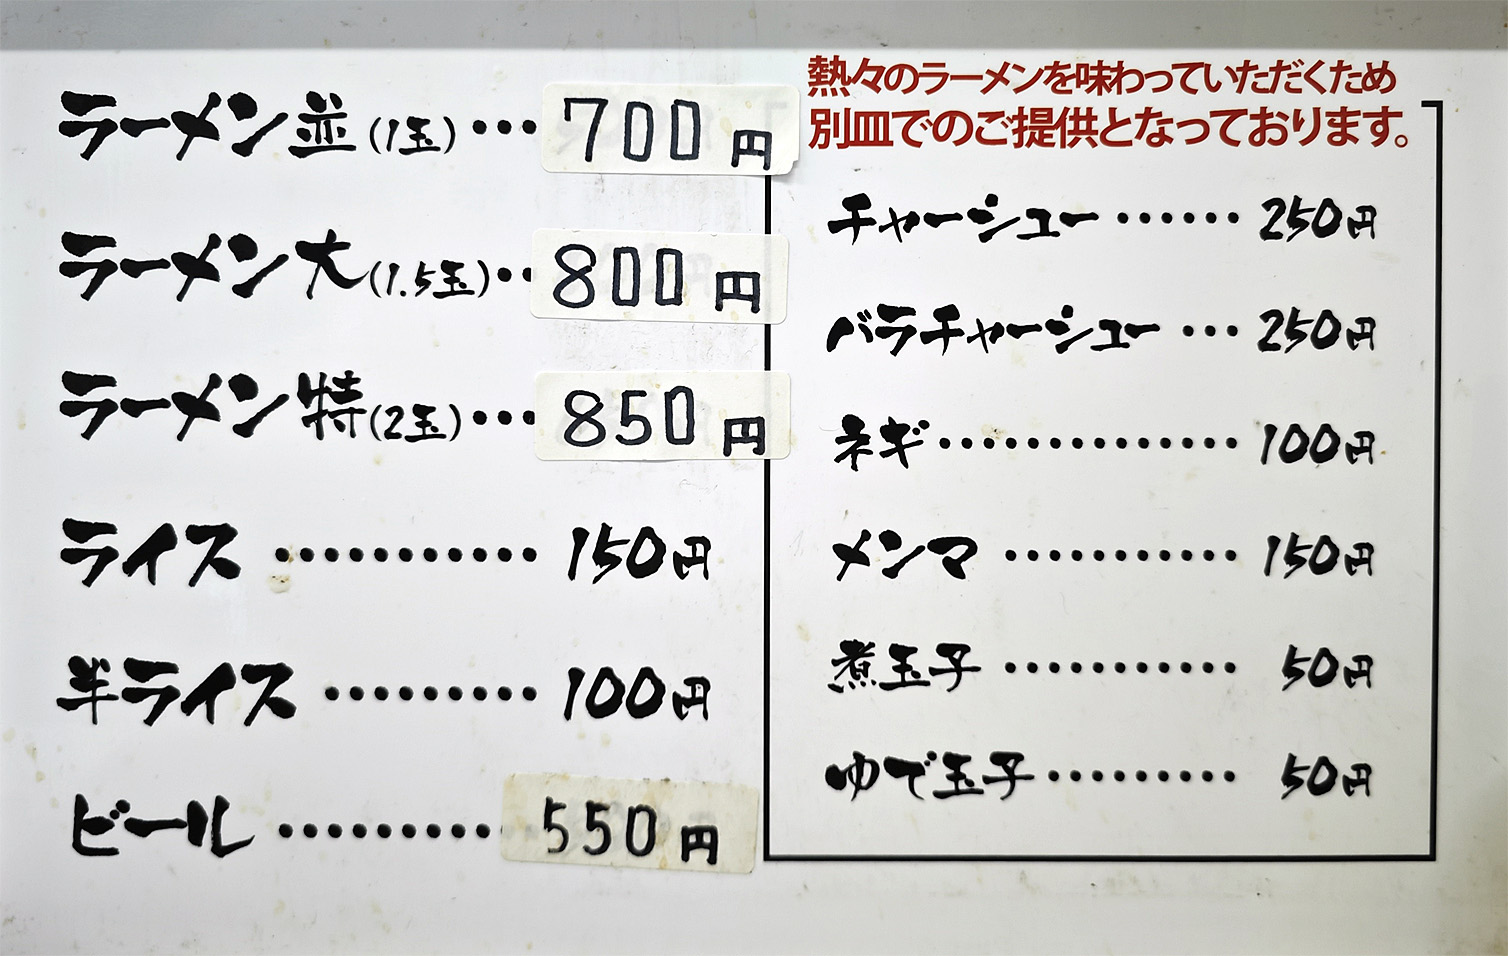 ラーメン並(1玉)・・・700円
ラーメン大(1.5玉)・・800円
ラーメン特(2玉)・・・850円
ライス・・・・・・・・・・・150円
半ライス・・・・・・・・・100円
ビール・・・・・・・・・550円
熱々のラーメンを味わっていただくため
別皿でのご提供となっております。
チャーシュー・・・・・・250円
バラチャーシュー・・・250円
ネギ・・・・・・・・・・・・・100円
メンマ・・・・・・・・・・150円
煮玉子・・・・・・・・・・50円
ゆで玉子・・・・・・・・50円